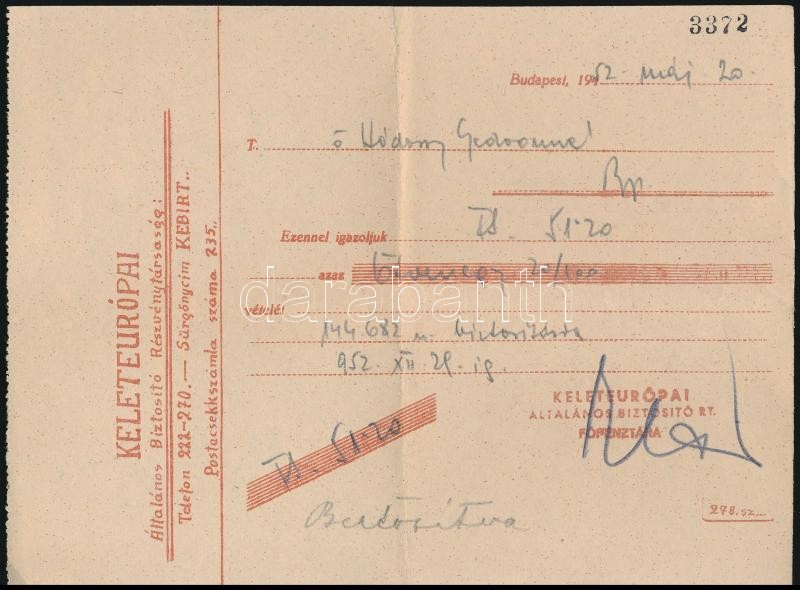 3372
Budapest, 1952 máj 20.
T. Ő
Bp
Ezennel igazoljuk Ft. 51.20
azaz Ötvenegy 20/100
vételét
144.682 sz. biztosításra
952. XII. 29-ig.
KELETEURÓPAI
ÁLTALÁNOS BIZTOSITÓ RT.
FŐPÉNZTÁRA
Ft. 51.20
278.sz...
KELETEURÓPAI
Általános Biztositó Részvénytársaság:
Telefon 222-270.— Sürgönycim KEBIRT..
Postacsekkszámla száma 235.
darabanth